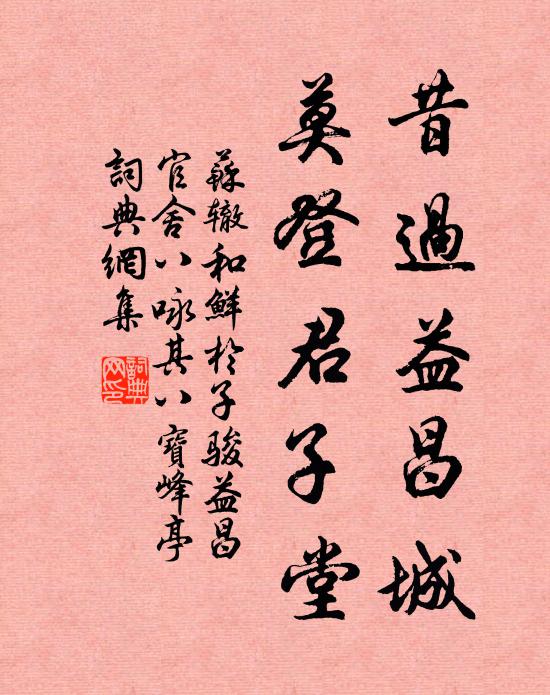 昔過益昌城
莫登君子堂
蘇辙和鮮於子駿益昌
官舍八咏其八寶峰亭
詞典網集
詞典网印